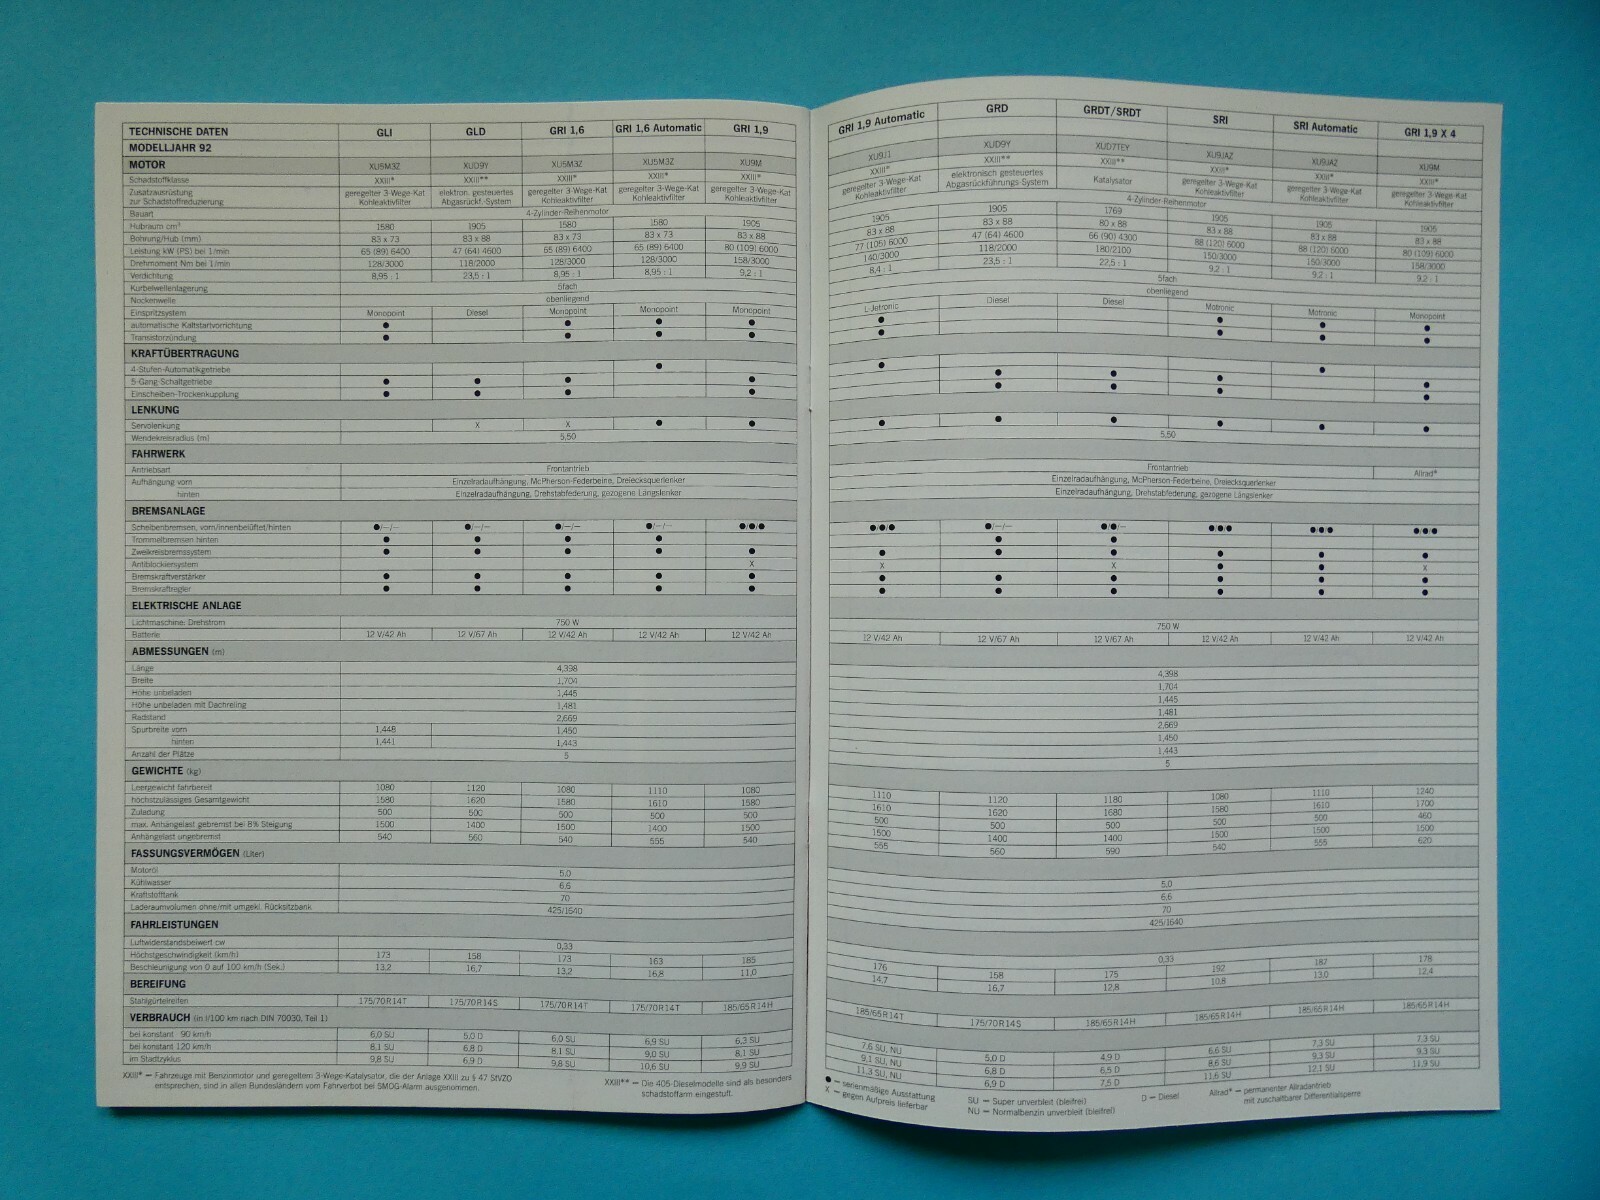 TECHNISCHE DATEN GLI GLD GRI 1,6 GRI 1,6 Automatic GRI 1,9
MODELLJAHR 92
MOTOR XU5M3Z XUD9Y XU5M3Z XU5M3Z XU9M
Schadstoffklasse XXIII* XXIII** XXIII* XXIII* XXIII*
Zusatzausrüstung geregelter 3-Wege-Kat elektron. gesteuertes geregelter 3-Wege-Kat geregelter 3-Wege-Kat geregelter 3-Wege-Kat
zur Schadstoffreduzierung Kohleaktivfilter Abgasrückf.-System Kohleaktivfilter Kohleaktivfilter Kohleaktivfilter
Bauart 4-Zylinder-Reihenmotor
Hubraum cm³ 1580 1905 1580 1580 1905
Bohrung/Hub (mm) 83 x 73 83 x 88 83 x 73 83 x 73 83 x 88
Leistung kW (PS) bei 1/min 65 (89) 6400 47 (64) 4600 65 (89) 6400 65 (89) 6400 80 (109) 6000
Drehmoment Nm bei 1/min 128/3000 118/2000 128/3000 128/3000 158/3000
Verdichtung 8,95 : 1 23,5 : 1 8,95 : 1 8,95 : 1 9,2 : 1
Kurbelwellenlagerung 5fach
Nockenwelle obenliegend
Einspritzsystem Monopoint Diesel Monopoint Monopoint Monopoint
automatische Kaltstartvorrichtung ● ● ● ●
Transistorzündung ● ● ● ●
KRAFTÜBERTRAGUNG
4-Stufen-Automatikgetriebe ●
5-Gang-Schaltgetriebe ● ● ● ●
Einscheiben-Trockenkupplung ● ● ● ●
LENKUNG
Servolenkung X X ● ●
Wendekreisradius (m) 5,50
FAHRWERK
Antriebsart Frontantrieb
Aufhängung vorn Einzelradaufhängung, McPherson-Federbeine, Dreiecksquerlenker
hinten Einzelradaufhängung, Drehstabfederung, gezogene Längslenker
BREMSANLAGE
Scheibenbremsen, vorn/innenbelüftet/hinten ●/–/– ●/–/– ●/–/– ●/–/– ●/●/●
Trommelbremsen hinten ● ● ● ●
Zweikreisbremssystem ● ● ● ● ●
Antiblockiersystem X
Bremskraftverstärker ● ● ● ● ●
Bremskraftregler ● ● ● ● ●
ELEKTRISCHE ANLAGE
Lichtmaschine: Drehstrom 750 W
Batterie 12 V/42 Ah 12 V/67 Ah 12 V/42 Ah 12 V/42 Ah 12 V/42 Ah
ABMESSUNGEN (m)
Länge 4,398
Breite 1,704
Höhe unbeladen 1,445
Höhe unbeladen mit Dachreling 1,481
Radstand 2,669
Spurbreite vorn 1,448 1,450
hinten 1,441 1,443
Anzahl der Plätze 5
GEWICHTE (kg)
Leergewicht fahrbereit 1080 1120 1080 1110 1080
höchstzulässiges Gesamtgewicht 1580 1620 1580 1610 1580
Zuladung 500 500 500 500 500
max. Anhängelast gebremst bei 8% Steigung 1500 1400 1500 1400 1500
Anhängelast ungebremst 540 560 540 555 540
FASSUNGSVERMÖGEN (Liter)
Motoröl 5,0
Kühlwasser 6,6
Kraftstofftank 70
Laderaumvolumen ohne/mit umgekl. Rücksitzbank 425/1640
FAHRLEISTUNGEN
Luftwiderstandsbeiwert cw 0,33
Höchstgeschwindigkeit (km/h) 173 158 173 163 185
Beschleunigung von 0 auf 100 km/h (Sek.) 13,2 16,7 13,2 16,8 11,0
BEREIFUNG
Stahlgürtelreifen 175/70R14T 175/70R14S 175/70R14T 175/70R14T 185/65R14H
VERBRAUCH (in l/100 km nach DIN 70030, Teil 1)
bei konstant 90 km/h 6,0 SU 5,0 D 6,0 SU 6,9 SU 6,3 SU
bei konstant 120 km/h 8,1 SU 6,8 D 8,1 SU 9,0 SU 8,1 SU
im Stadtzyklus 9,8 SU 6,9 D 9,8 SU 10,6 SU 9,9 SU
XXIII* — Fahrzeuge mit Benzinmotor und geregeltem 3-Wege-Katalysator, die der Anlage XXIII zu § 47 StVZO
entsprechen, sind in allen Bundesländern vom Fahrverbot bei SMOG-Alarm ausgenommen.
XXIII** — Die 405-Dieselmodelle sind als besonders
schadstoffarm eingestuft.
GRI 1,9 Automatic GRD GRDT/SRDT SRI SRI Automatic GRI 1,9 X 4
XU9J1 XUD9Y XUD7TEY XU9JAZ XU9JAZ XU9M
XXIII* XXIII** XXIII** XXIII* XXIII* XXIII*
geregelter 3-Wege-Kat elektronisch gesteuertes Katalysator geregelter 3-Wege-Kat geregelter 3-Wege-Kat geregelter 3-Wege-Kat
Kohleaktivfilter Abgasrückführungs-System Kohleaktivfilter Kohleaktivfilter Kohleaktivfilter
4-Zylinder-Reihenmotor
1905 1905 1769 1905 1905 1905
83 x 88 83 x 88 80 x 88 83 x 88 83 x 88 83 x 88
77 (105) 6000 47 (64) 4600 66 (90) 4300 88 (120) 6000 88 (120) 6000 80 (109) 6000
140/3000 118/2000 180/2100 150/3000 150/3000 158/3000
8,4 : 1 23,5 : 1 22,5 : 1 9,2 : 1 9,2 : 1 9,2 : 1
5fach
obenliegend
L-Jetronic Diesel Diesel Motronic Motronic Monopoint
● ● ● ●
● ● ● ●
● ●
● ● ● ●
● ● ● ●
● ● ● ● ● ●
5,50
Frontantrieb Allrad*
Einzelradaufhängung, McPherson-Federbeine, Dreiecksquerlenker
Einzelradaufhängung, Drehstabfederung, gezogene Längslenker
●/●/● ●/–/– ●/●/– ●/●/● ●/●/● ●/●/●
● ●
● ● ● ● ● ●
X X ● ● X
● ● ● ● ● ●
● ● ● ● ● ●
750 W
12 V/42 Ah 12 V/67 Ah 12 V/67 Ah 12 V/42 Ah 12 V/42 Ah 12 V/42 Ah
4,398
1,704
1,445
1,481
2,669
1,450
1,443
5
1110 1120 1180 1080 1110 1240
1610 1620 1680 1580 1610 1700
500 500 500 500 500 460
1500 1400 1400 1500 1500 1500
555 560 590 540 555 620
5,0
6,6
70
425/1640
0,33
176 158 175 192 187 178
14,7 16,7 12,8 10,8 13,0 12,4
185/65R14T 175/70R14S 185/65R14H 185/65R14H 185/65R14H 185/65R14H
7,6 SU, NU 5,0 D 4,9 D 6,6 SU 7,3 SU 7,3 SU
9,1 SU, NU 6,8 D 6,5 D 8,6 SU 9,3 SU 9,3 SU
11,3 SU, NU 6,9 D 7,5 D 11,6 SU 12,1 SU 11,9 SU
● — serienmäßige Ausstattung
X — gegen Aufpreis lieferbar
SU — Super unverbleit (bleifrei)
NU — Normalbenzin unverbleit (bleifrei)
D — Diesel
Allrad* — permanenter Allradantrieb
mit zuschaltbarer Differentialsperre